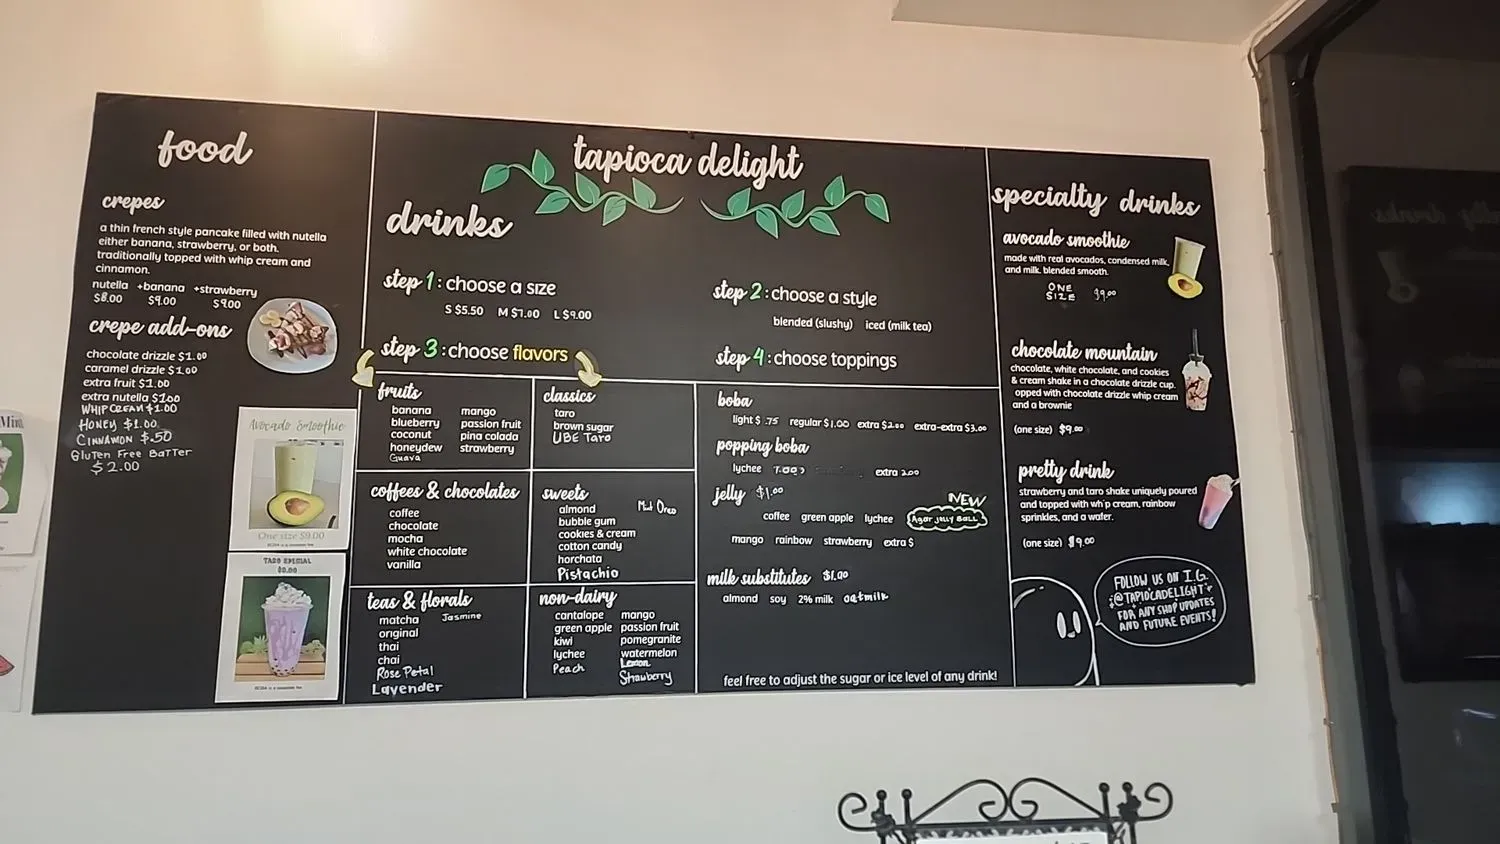 food
crepes
a thin french style pancake filled with nutella
either banana, strawberry, or both.
traditionally topped with whip cream and
cinnamon.
nutella +banana +strawberry
$8.00 $9.00 $9.00
crepe add-ons
chocolate drizzle $1.00
caramel drizzle $1.00
extra fruit $1.00
extra nutella $1.00
WHIP CREAM $1.00
HONEY $1.00
CINNAMON $.50
Gluten Free Batter
$2.00
Avocado Smoothie
One size $9.00
TARO SPECIAL
tapioca delight
drinks
step 1: choose a size
S $5.50 M $7.00 L $9.00
step 2: choose a style
blended (slushy) iced (milk tea)
step 3: choose flavors
fruits
banana mango
blueberry passion fruit
coconut pina colada
honeydew strawberry
Guava
classics
taro
brown sugar
UBE Taro
coffees & chocolates
coffee
chocolate
mocha
white chocolate
vanilla
sweets
almond Mint Oreo
bubble gum
cookies & cream
cotton candy
horchata
Pistachio
teas & florals
matcha Jasmine
original
thai
chai
Rose Petal
Lavender
non-dairy
cantalope mango
green apple passion fruit
kiwi pomegranite
lychee watermelon
Peach Lemon
Strawberry
step 4: choose toppings
boba
light $ .75 regular $1.00 extra $2.00 extra-extra $3.00
popping boba
lychee extra 2.00
jelly $1.00
NEW
coffee green apple lychee Agar Jelly Ball
mango rainbow strawberry extra $
milk substitutes $1.00
almond soy 2% milk oatmilk
feel free to adjust the sugar or ice level of any drink!
specialty drinks
avocado smoothie
made with real avocados, condensed milk,
and milk. blended smooth.
ONE
SIZE $9.00
chocolate mountain
chocolate, white chocolate, and cookies
& cream shake in a chocolate drizzle cup.
opped with chocolate drizzle whip cream
and a brownie
(one size) $9.00
pretty drink
strawberry and taro shake uniquely poured
and topped with wh p cream, rainbow
sprinkles, and a wafer.
(one size) $9.00
FOLLOW US ON I.G.
@TAPIOCADELIGHT
FOR ANY SHOP UPDATES
AND FUTURE EVENTS!